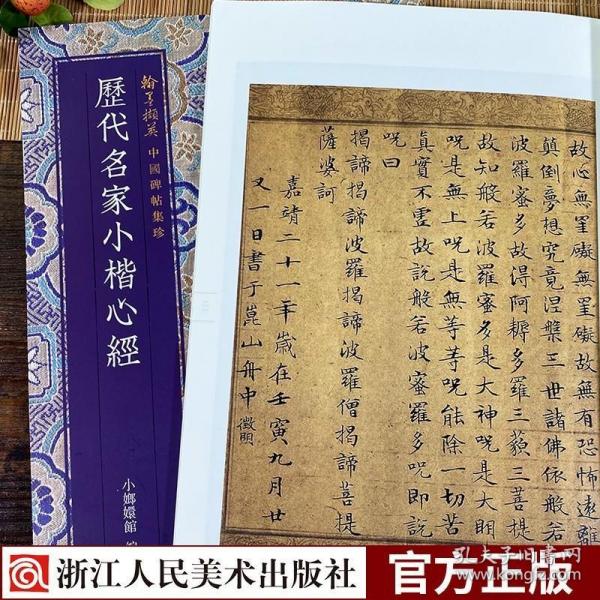 翰墨擷英
中國碑帖集珍
歷代名家小楷心經
小嫏嬛館
故心無罣礙無罣礙故無有恐怖遠離
顛倒夢想究竟涅槃三世諸佛依般若
波羅蜜多故得阿耨多羅三藐三菩提
故知般若波羅蜜多是大神呪是大明
呪是無上呪是無等等呪能除一切苦
真實不虛故說般若波羅蜜多呪即說
呪曰
揭諦揭諦波羅揭諦波羅僧揭諦菩提
薩婆訶
嘉靖二十一年歲在壬寅九月廿
又一日書于崑山舟中
徵明
浙江人民美术出版社
官方正版
孔夫子旧书网
www.kongfz.com